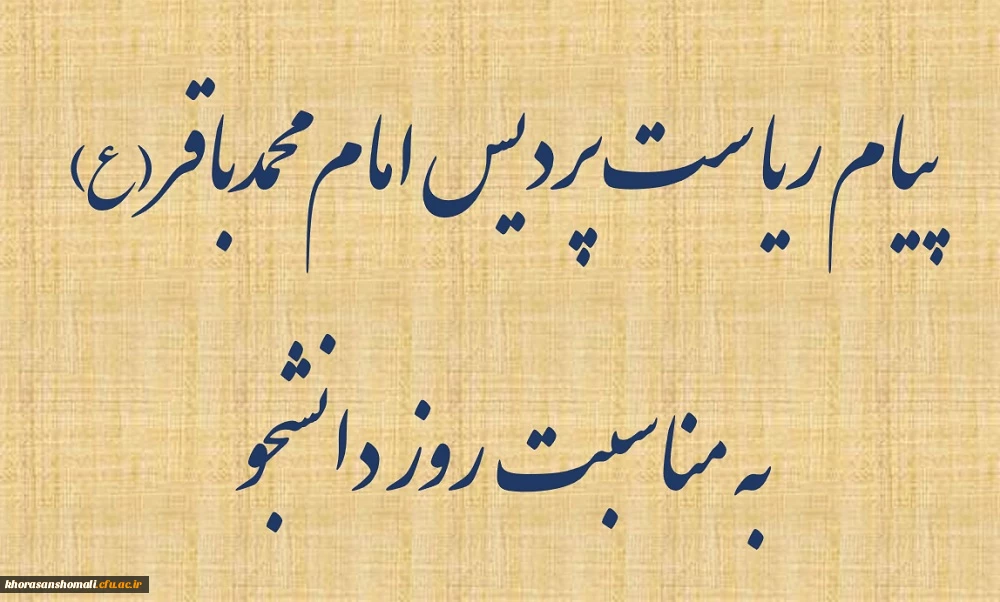 پیام ریاست پردیس امام محمدباقر(ع)
به مناسبت روز دانشجو
khorasanshomali.cfu.ac.ir